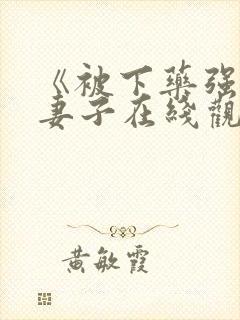 《被下藥强
妻子在綫觀
黄敏霞